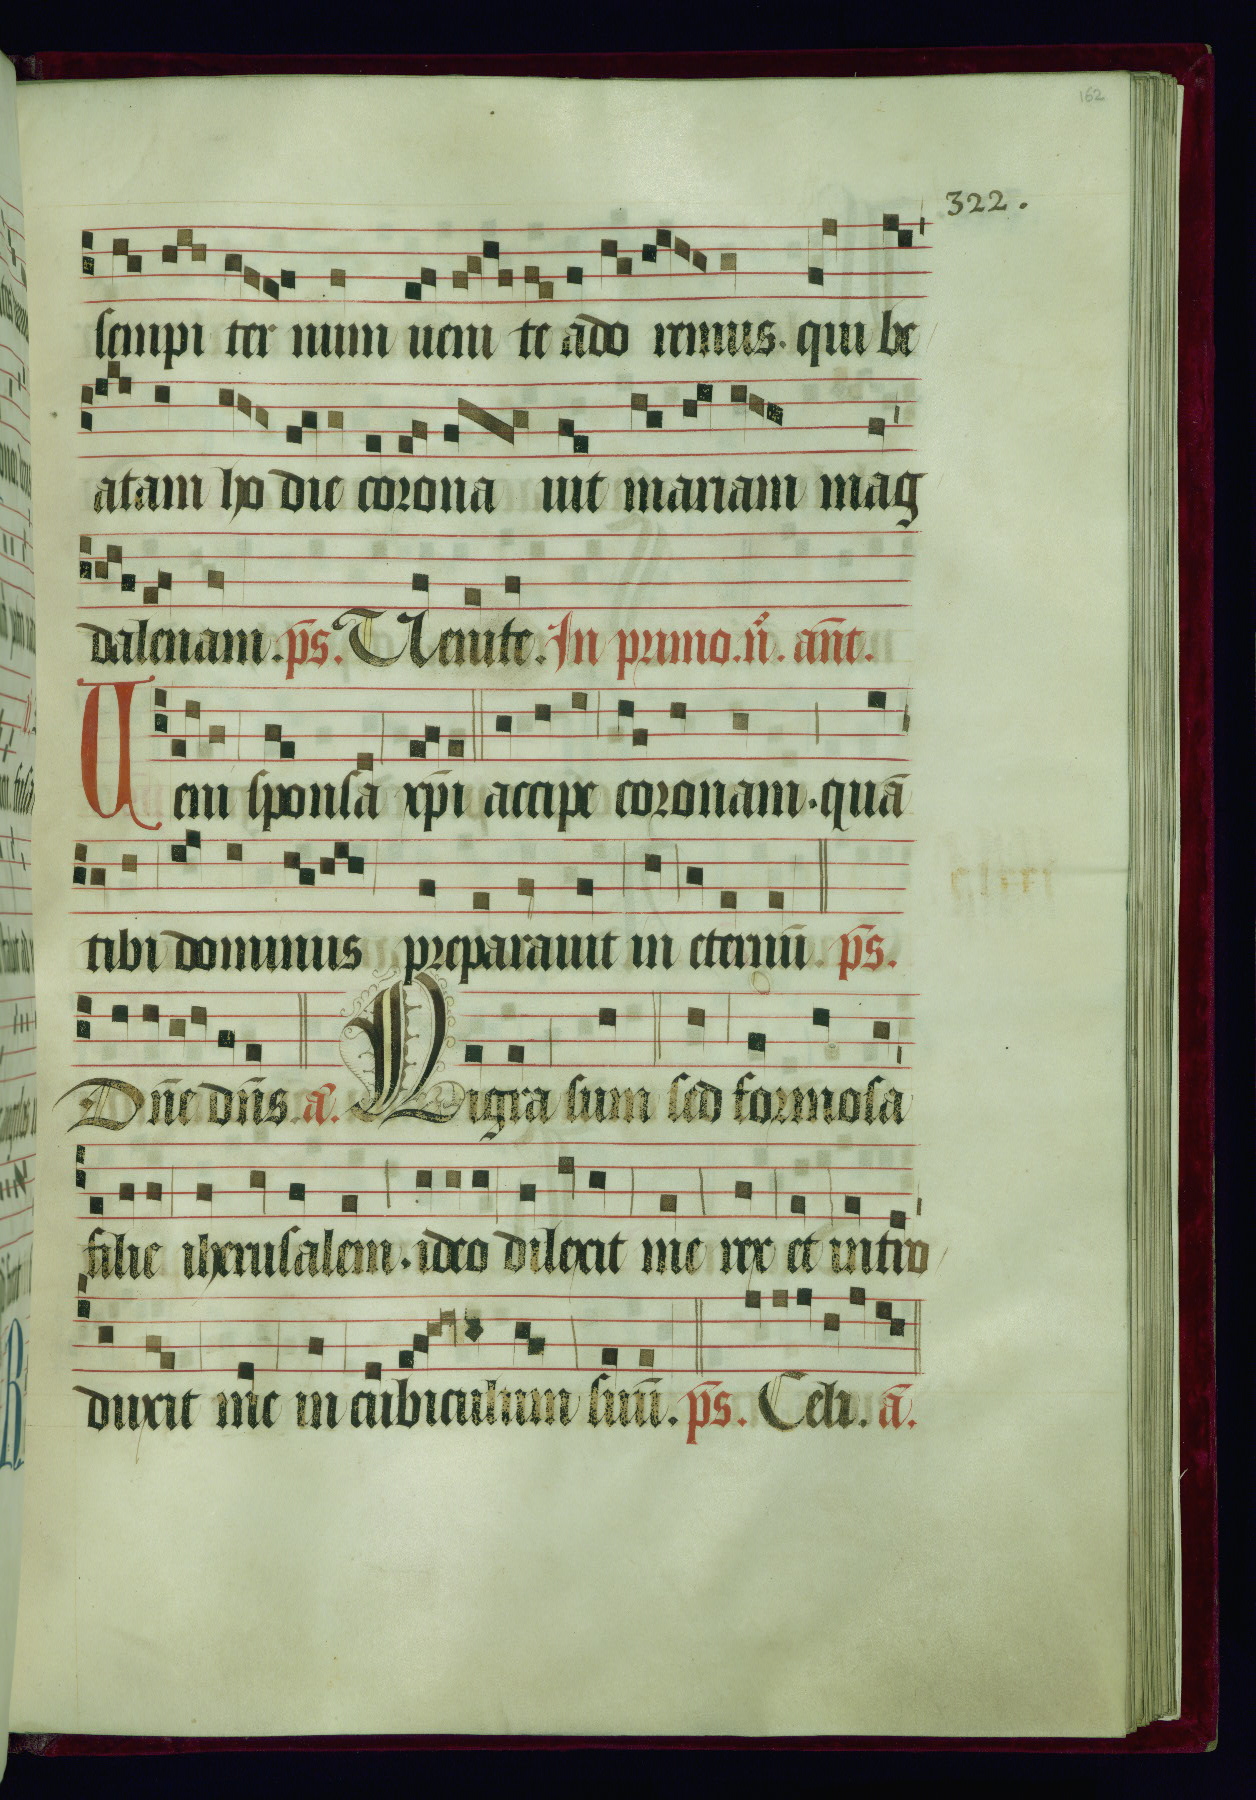 162
322.
sempi ter num ueni te ado remus. qui be
atam ho die corona uit mariam mag
dalenam. ps̄. Uenite. In primo. n̄. an̄t.
Ueni sponsa xp̄i accipe coronam. quā
tibi dominus preparauit in eternū ps̄.
Dn̄e dn̄s. a. Nigra sum sed formosa
filie iherusalem. ideo dilexit me rex et intro
duxit me in cubiculum suū. ps̄. Celi. ā.